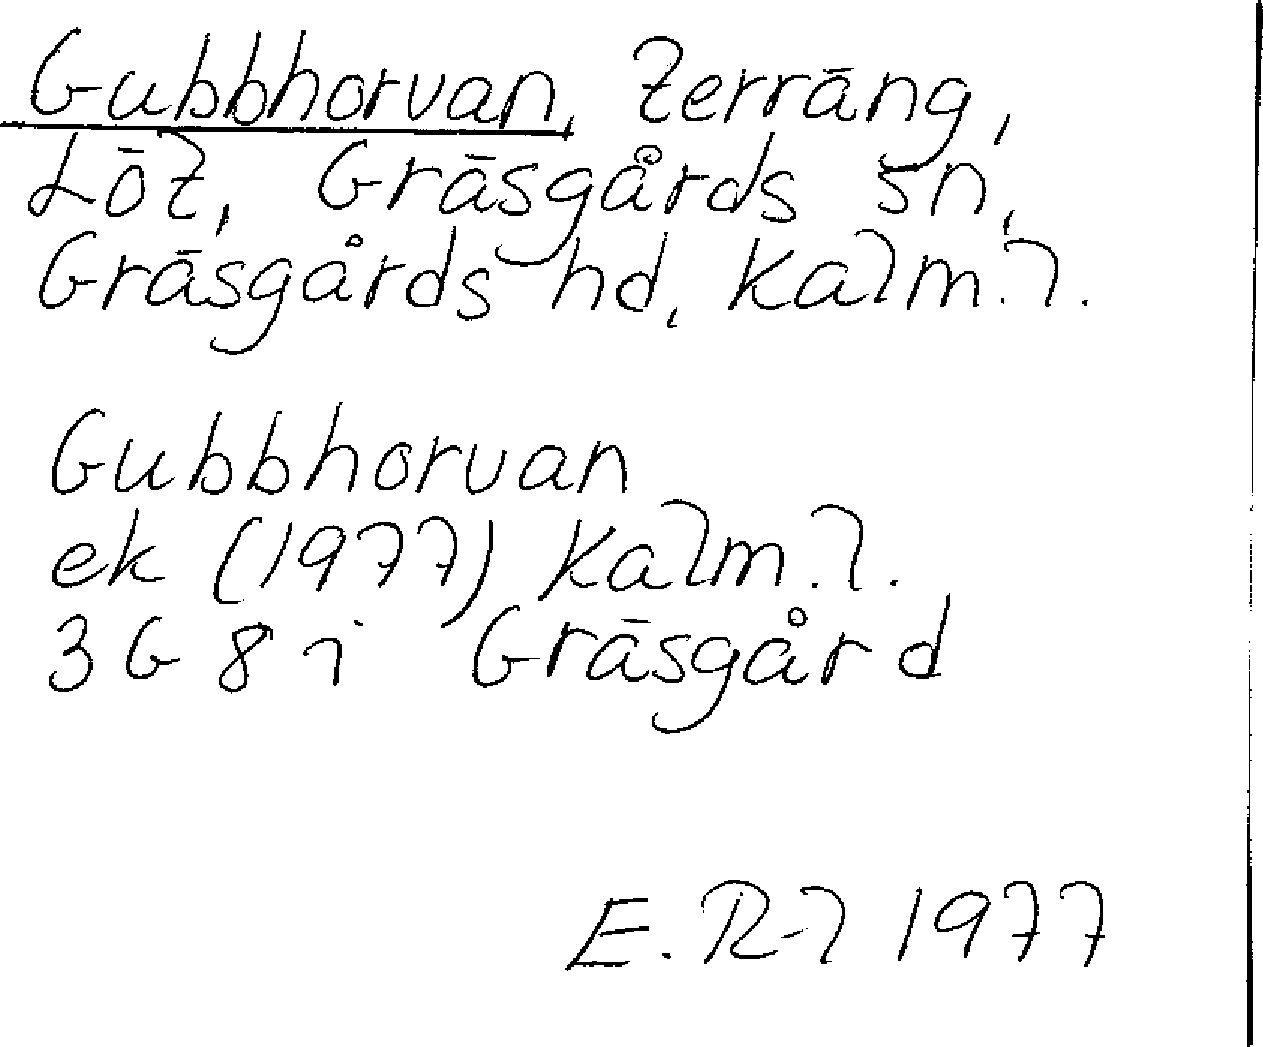 Gubbhorvan, terräng,
Löt, Gräsgårds sn,
Gräsgårds hd, Kalm.l.
Gubbhorvan
ek (1977) Kalm.l.
3G 8 i Gräsgård
E.R-l 1977